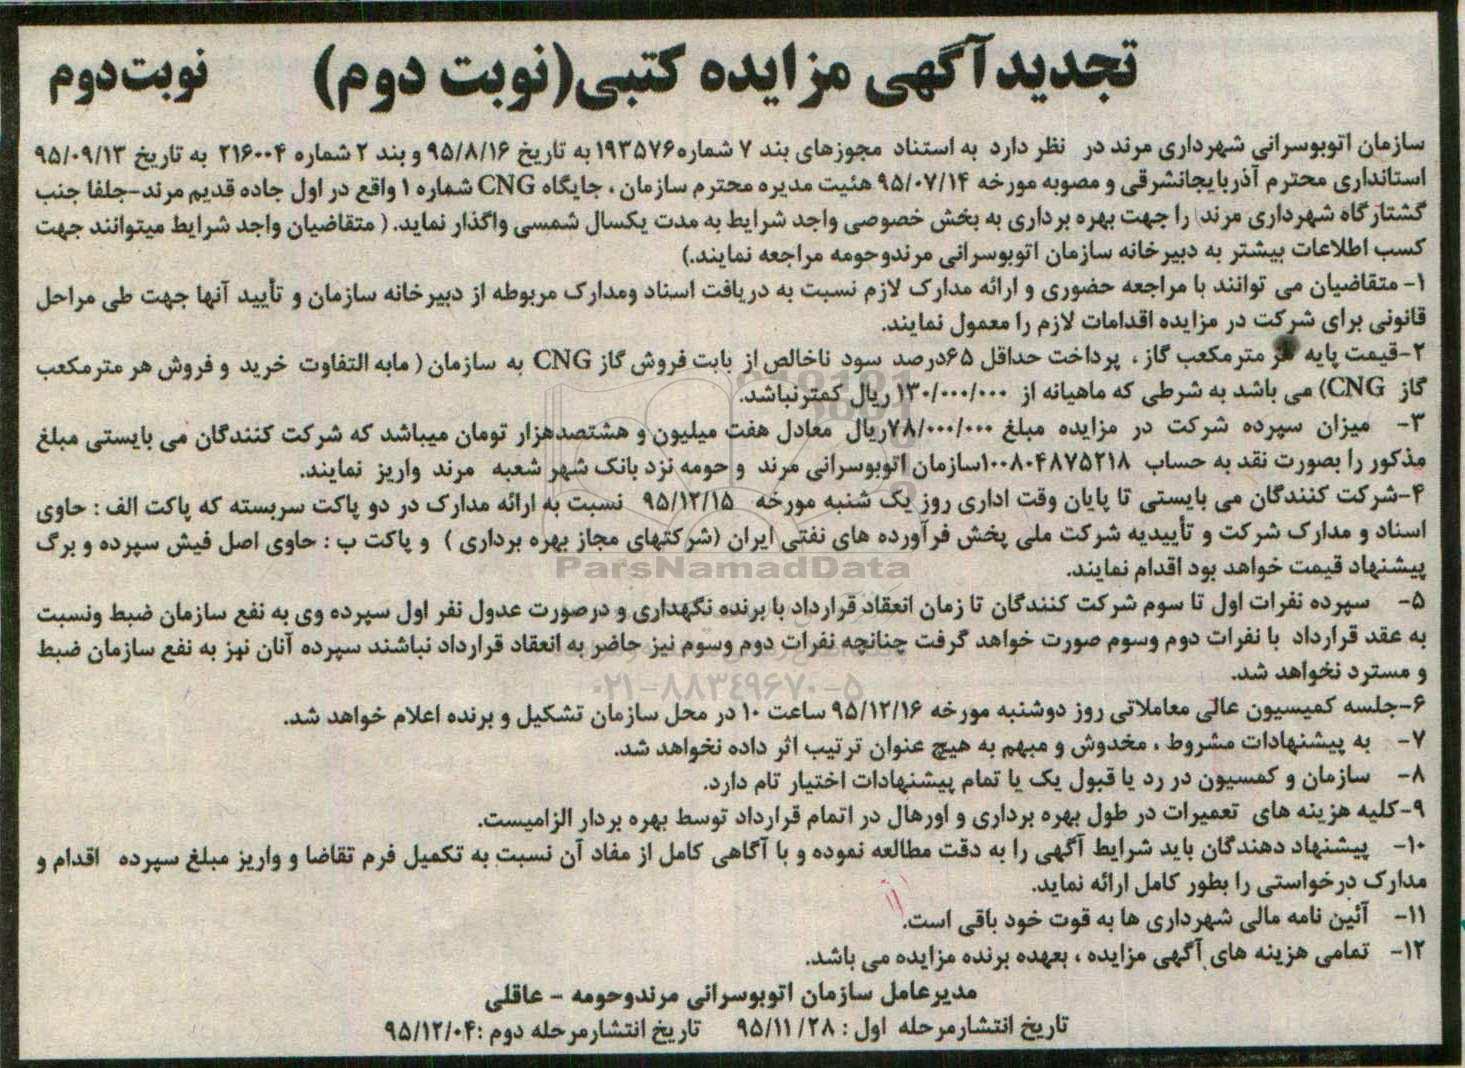 تجدید آگهی مزایده کتبی (نوبت دوم) نوبت دوم
سازمان اتوبوسرانی شهرداری مرند در نظر دارد به استناد مجوزهای بند ۷ شماره ۱۹۳۵۷۶ به تاریخ ۹۵/۸/۱۶ و بند ۲ شماره ۲۱۶۰۰۴ به تاریخ ۹۵/۰۹/۱۳
استانداری محترم آذربایجانشرقی و مصوبه مورخه ۹۵/۰۷/۱۴ هئیت مدیره محترم سازمان ، جایگاه CNG شماره ۱ واقع در اول جاده قدیم مرند-جلفا جنب
گشتارگاه شهرداری مرند را جهت بهره برداری به بخش خصوصی واجد شرایط به مدت یکسال شمسی واگذار نماید. ( متقاضیان واجد شرایط میتوانند جهت
کسب اطلاعات بیشتر به دبیرخانه سازمان اتوبوسرانی مرندوحومه مراجعه نمایند.)
۱- متقاضیان می توانند با مراجعه حضوری و ارائه مدارک لازم نسبت به دریافت اسناد ومدارک مربوطه از دبیرخانه سازمان و تأیید آنها جهت طی مراحل
قانونی برای شرکت در مزایده اقدامات لازم را معمول نمایند.
۲-قیمت پایه هر مترمکعب گاز ، پرداخت حداقل ۶۵درصد سود ناخالص از بابت فروش گاز CNG به سازمان ( مابه التفاوت خرید و فروش هر مترمکعب
گاز CNG) می باشد به شرطی که ماهیانه از ۱۳۰/۰۰۰/۰۰۰ ریال کمترنباشد.
۳- میزان سپرده شرکت در مزایده مبلغ ۷۸/۰۰۰/۰۰۰ریال معادل هفت میلیون و هشتصدهزار تومان میباشد که شرکت کنندگان می بایستی مبلغ
مذکور را بصورت نقد به حساب ۱۰۰۸۰۴۸۷۵۲۱۸سازمان اتوبوسرانی مرند و حومه نزد بانک شهر شعبه مرند واریز نمایند.
۴-شرکت کنندگان می بایستی تا پایان وقت اداری روز یک شنبه مورخه ۹۵/۱۲/۱۵ نسبت به ارائه مدارک در دو پاکت سربسته که پاکت الف : حاوی
اسناد و مدارک شرکت و تأییدیه شرکت ملی پخش فرآورده های نفتی ایران (شرکتهای مجاز بهره برداری ) و پاکت ب : حاوی اصل فیش سپرده و برگ
پیشنهاد قیمت خواهد بود اقدام نمایند.
ParsNamadData
۵- سپرده نفرات اول تا سوم شرکت کنندگان تا زمان انعقاد قرارداد با برنده نگهداری و درصورت عدول نفر اول سپرده وی به نفع سازمان ضبط ونسبت
به عقد قرارداد با نفرات دوم وسوم صورت خواهد گرفت چنانچه نفرات دوم وسوم نیز حاضر به انعقاد قرارداد نباشند سپرده آنان نیز به نفع سازمان ضبط
و مسترد نخواهد شد.
۰۲۱-۸۸۳۴۹۶۷۰-۵
۶-جلسه کمیسیون عالی معاملاتی روز دوشنبه مورخه ۹۵/۱۲/۱۶ ساعت ۱۰ در محل سازمان تشکیل و برنده اعلام خواهد شد.
۷- به پیشنهادات مشروط ، مخدوش و مبهم به هیچ عنوان ترتیب اثر داده نخواهد شد.
۸- سازمان و کمسیون در رد یا قبول یک یا تمام پیشنهادات اختیار تام دارد.
۹-کلیه هزینه های تعمیرات در طول بهره برداری و اورهال در اتمام قرارداد توسط بهره بردار الزامیست.
۱۰- پیشنهاد دهندگان باید شرایط آگهی را به دقت مطالعه نموده و با آگاهی کامل از مفاد آن نسبت به تکمیل فرم تقاضا و واریز مبلغ سپرده اقدام و
مدارک درخواستی را بطور کامل ارائه نماید.
۱۱- آئین نامه مالی شهرداری ها به قوت خود باقی است.
۱۲- تمامی هزینه های آگهی مزایده ، بعهده برنده مزایده می باشد.
مدیرعامل سازمان اتوبوسرانی مرندوحومه - عاقلی
تاریخ انتشارمرحله اول : ۹۵/۱۱/۲۸ تاریخ انتشارمرحله دوم :۹۵/۱۲/۰۴